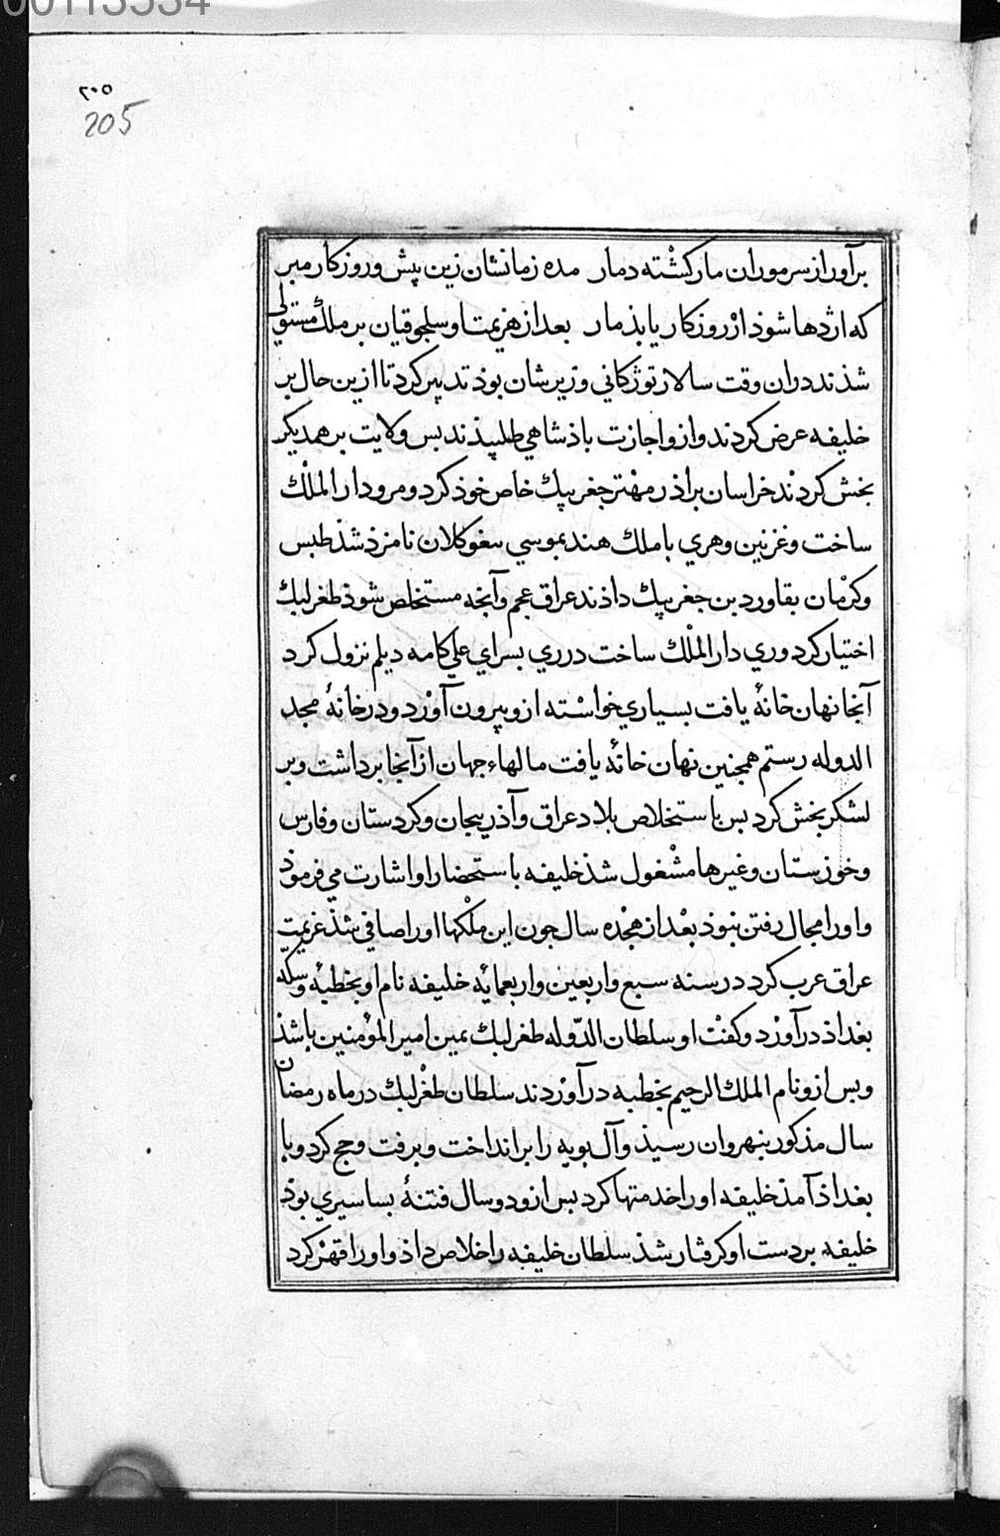 00113534
٢٠٥
205
برآور از سر موران مار کشته دمار مده زمانشان زین پیش و روزکار مبر
که اژدها شوذ ار روزکار یابذ مار بعد از هزیمت او سلجوقیان بر ملك مستولی
شذند دران وقت سالار توژکانی وزیرشان بوذ تدبیر کرد تا ازین حال بر
خلیفه عرض کردند و ازو اجازت باذشاهی طلبیذند بس ولایت بر همدیکر
بخش کردند خراسان براذر مهتر جغر بیك خاص خوذ کرد و مرو دار الملك
ساخت و غزنین و هری با ملك هند بموسی سغو کلان نامزذ شذ طبس
و کرمان بقاورد بن جغر بیك داذند عراق عجم و آنجه مستخلص شوذ طغرلبك
اختیار کرد وری دار الملك ساخت در ری بسرای علی کامه دیلم نزول کرد
آنجا نهان خانۀ یافت بسیاری خواسته ازو بیرون آورد و در خانۀ مجد
الدوله رستم همجنین نهان خانۀ یافت مالهاء جهان از آنجا برداشت و بر
لشکر بخش کرد بس باستخلاص بلاد عراق و آذربیجان و کردستان و فارس
و خوزستان و غیرها مشغول شذ خلیفه باستحضار او اشارت می فرموذ
و او را مجال رفتن نبوذ بعد از هجده سال جون این ملکها او را صافی شذ عزیمت
عراق عرب کرد در سنه سبع و اربعین و اربعمایه خلیفه نام او بخطبه و سکه
بغداذ درآورد و کفت او سلطان الدوله طغرلبك یمین امیر المؤمنین باشذ
و بس ازو نام الملك الرحیم بخطبه درآوردند سلطان طغرلبك در ماه رمضان
سال مذکور بنهروان رسیذ و آل بویه را برانداخت و برفت و حج کرد و با
بغداذ آمذ خلیفه او را خدمتها کرد بس ازو دو سال فتنۀ بساسیری بوذ
خلیفه بر دست او کرفتار شذ سلطان خلیفه را خلاص داذ و او را قهر کرد